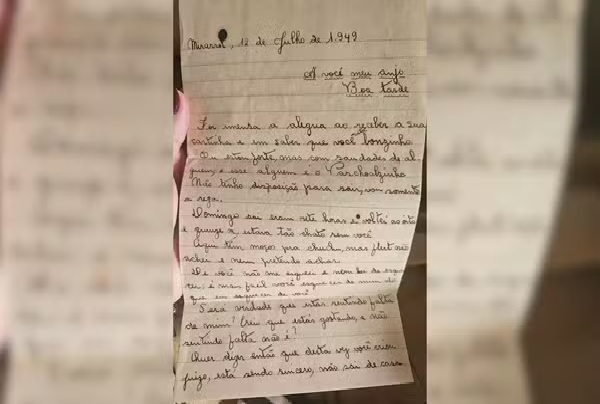 Mirassol, 12 de Julho de 1.949
A você meu anjo
Boa tarde
Foi imensa a alegria ao receber a sua
cartinha e em saber que você bonzinho
Eu estou forte, mas com saudades de al
guem, e esse alguem é o Paschoalzinho
Não tenho disposição para sair, vou somente
a reza.
Domingo sai eram sete horas e voltei as oito
e quinze, estava tão chato sem você
Aqui têm moços pra chuchu, mas flert não
achei e nem pretendo achar.
De você não me esqueci e nem hei de esque
cer, é mais facil você esquecer de mim do
que eu esquecer de você
Será verdade que estás sentindo falta
de mim? Creio que estás gostando, e não
sentindo falta não é?
Quer dizer então que desta vez você criou
juizo, está sendo sincero, não sai de casa